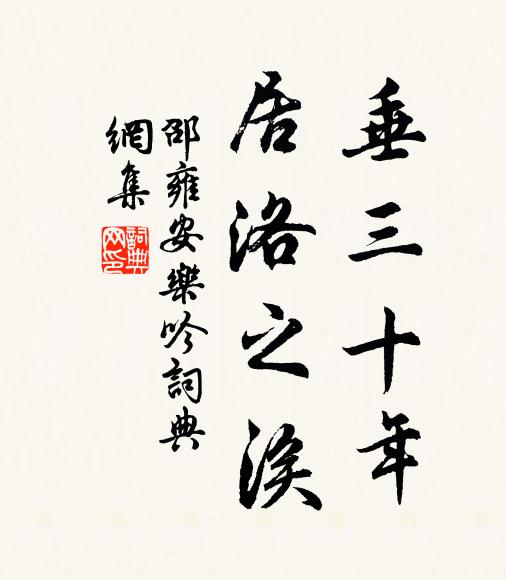 垂三十年
居洛之涘
邵雍安樂吟詞典
網集
詞典
网印